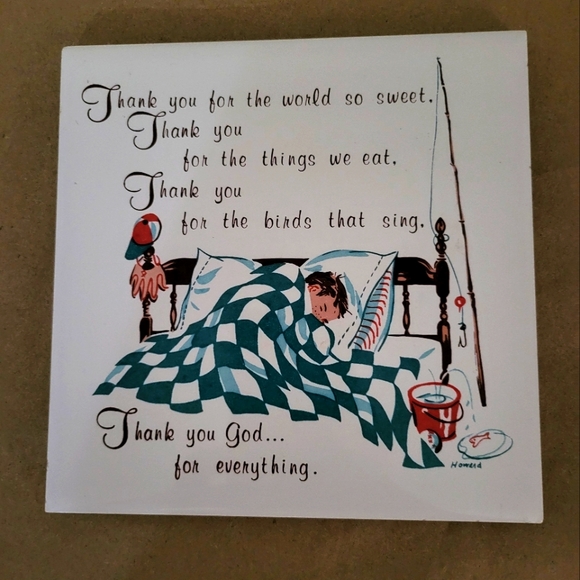 Thank you for the world so sweet.
Thank you
for the things we eat.
Thank you
for the birds that sing.
Thank you God...
for everything.
Howard